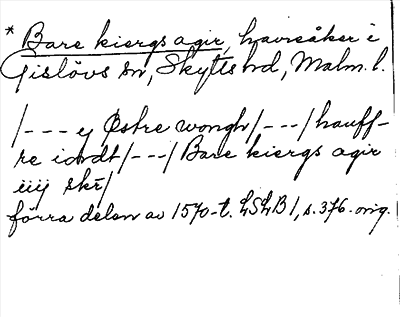 * Bare kiergs agir, havreåker i
Gislövs sn, Skytts hd, Malm. l.
/--- ej Østre wongh/---/hauff-
re iordt/---/Bare kiergs agir
iiij skr/
förra delen av 1570-t. LSLB 1, s. 376. orig.